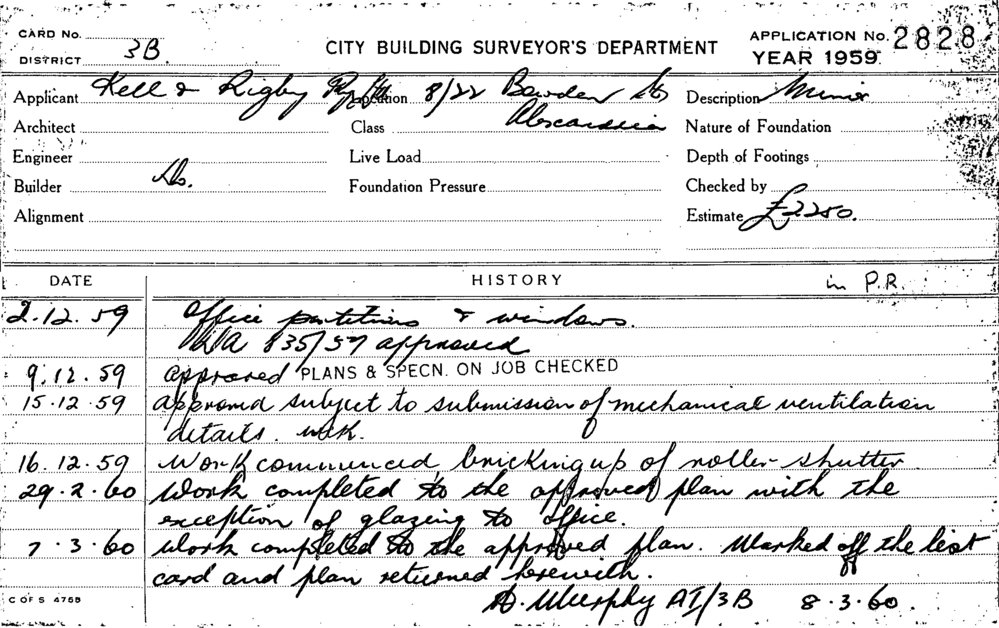 CARD No. CITY BUILDING SURVEYOR'S DEPARTMENT APPLICATION No. 2828
DISTRICT 3B YEAR 1959
Applicant Kell & Rigby Pty Ltd Location 8/22 Bowden St Description Minor
Architect Class Alexandria Nature of Foundation
Engineer Live Load Depth of Footings
Builder Do. Foundation Pressure Checked by
Alignment Estimate £2250.
DATE HISTORY in P.R.
2.12.59 Office partitions & windows.
835/59 approved
9.12.59 approved PLANS & SPECN. ON JOB CHECKED
15.12.59 approved subject to submission of mechanical ventilation
details.
16.12.59 Work commenced, bricking up of roller shutter
29.2.60 Work completed to the approved plan with the
exception of glazing to office.
7.3.60 Work completed to the approved plan. Marked off the list
card and plan returned herewith.
C OF S 4758 D. Murphy AI/3B 8.3.60.